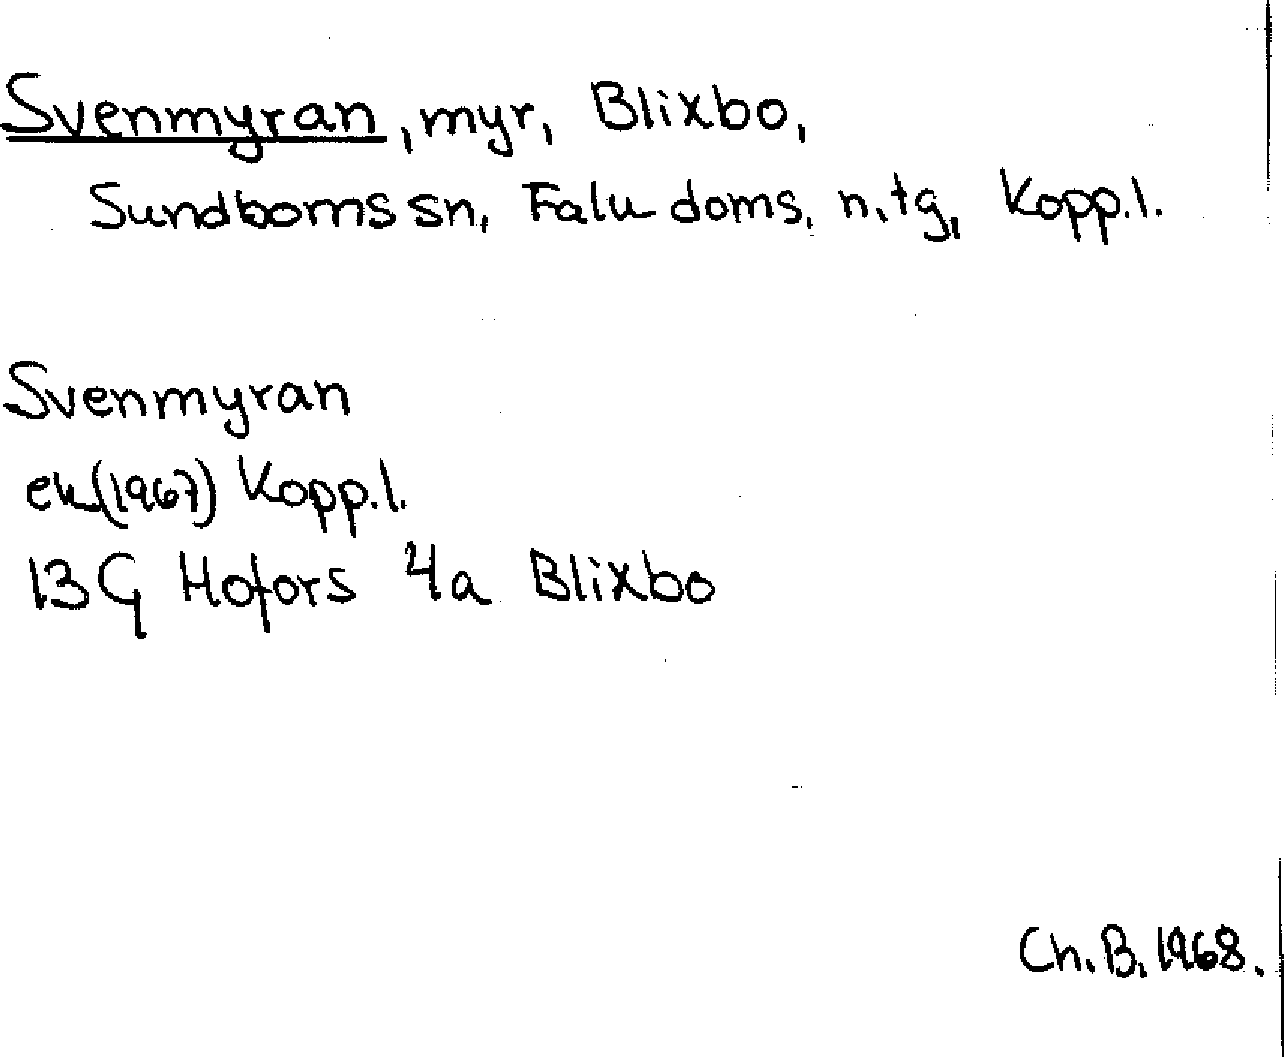 Svenmyran, myr, Blixbo,
Sundborns sn, Falu doms, n. tg, Kopp.l.
Svenmyran
ek (1967) Kopp.l.
13G Hofors 4a Blixbo
Ch. B. 1968.